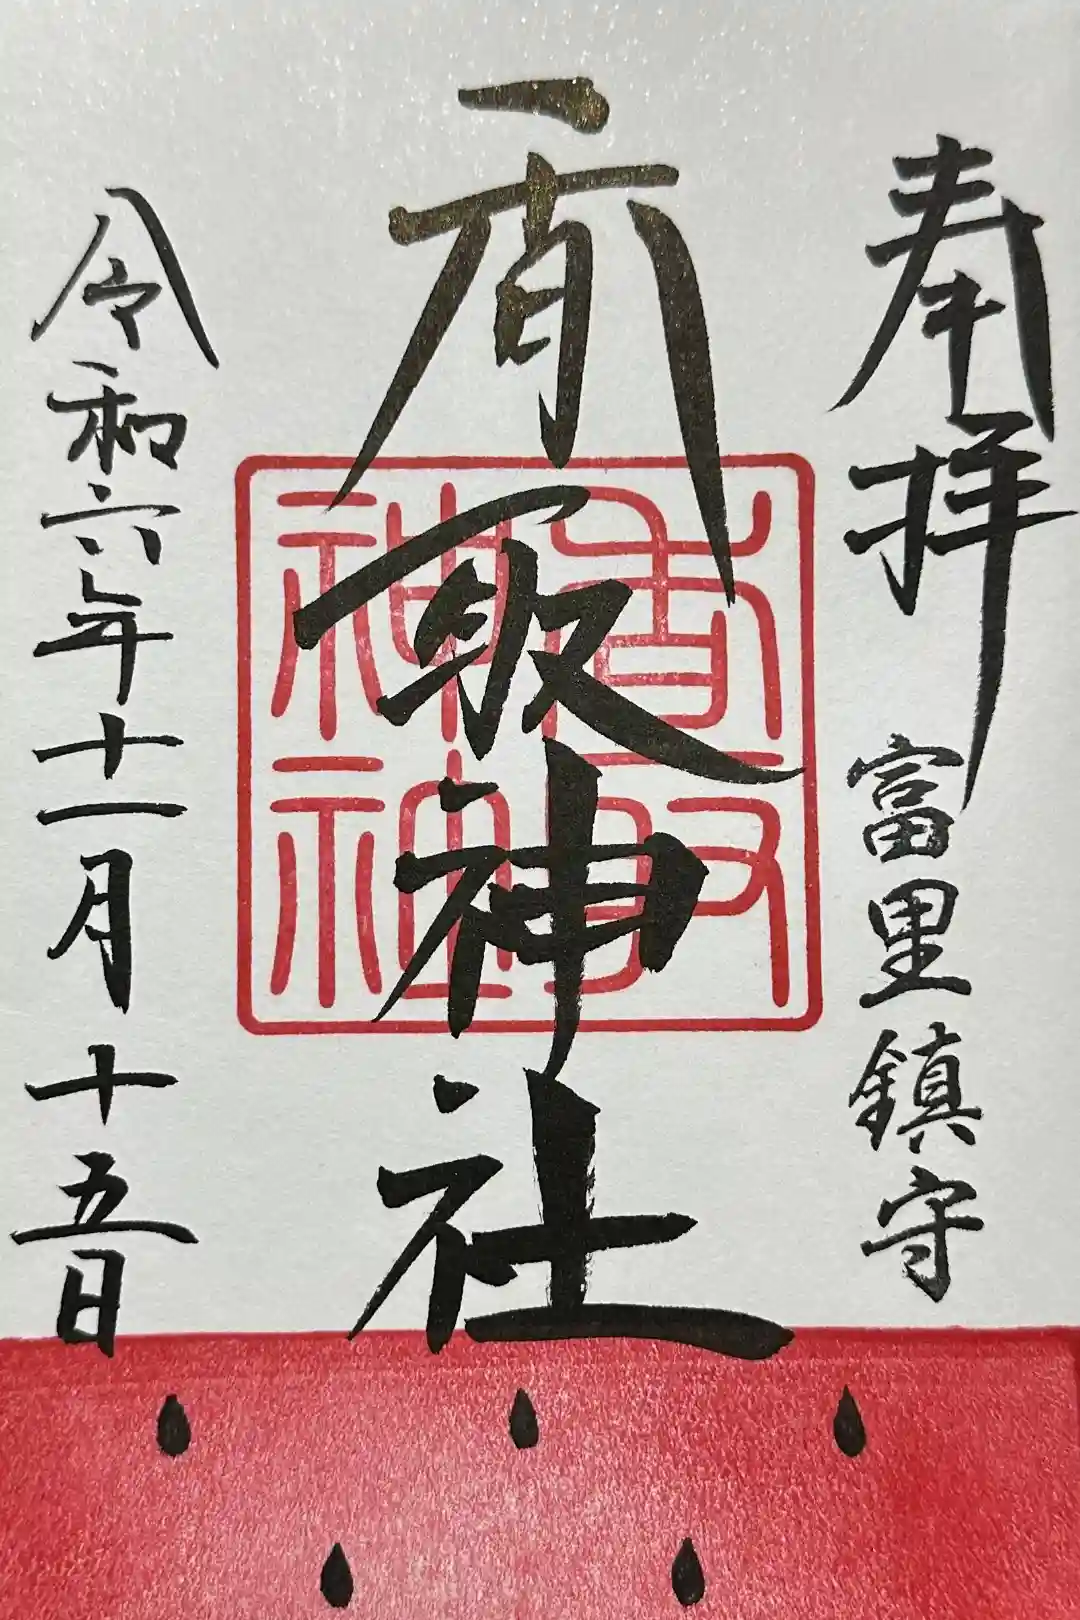 奉拝 富里鎮守
香取神社
香取神社
令和六年十一月十五日